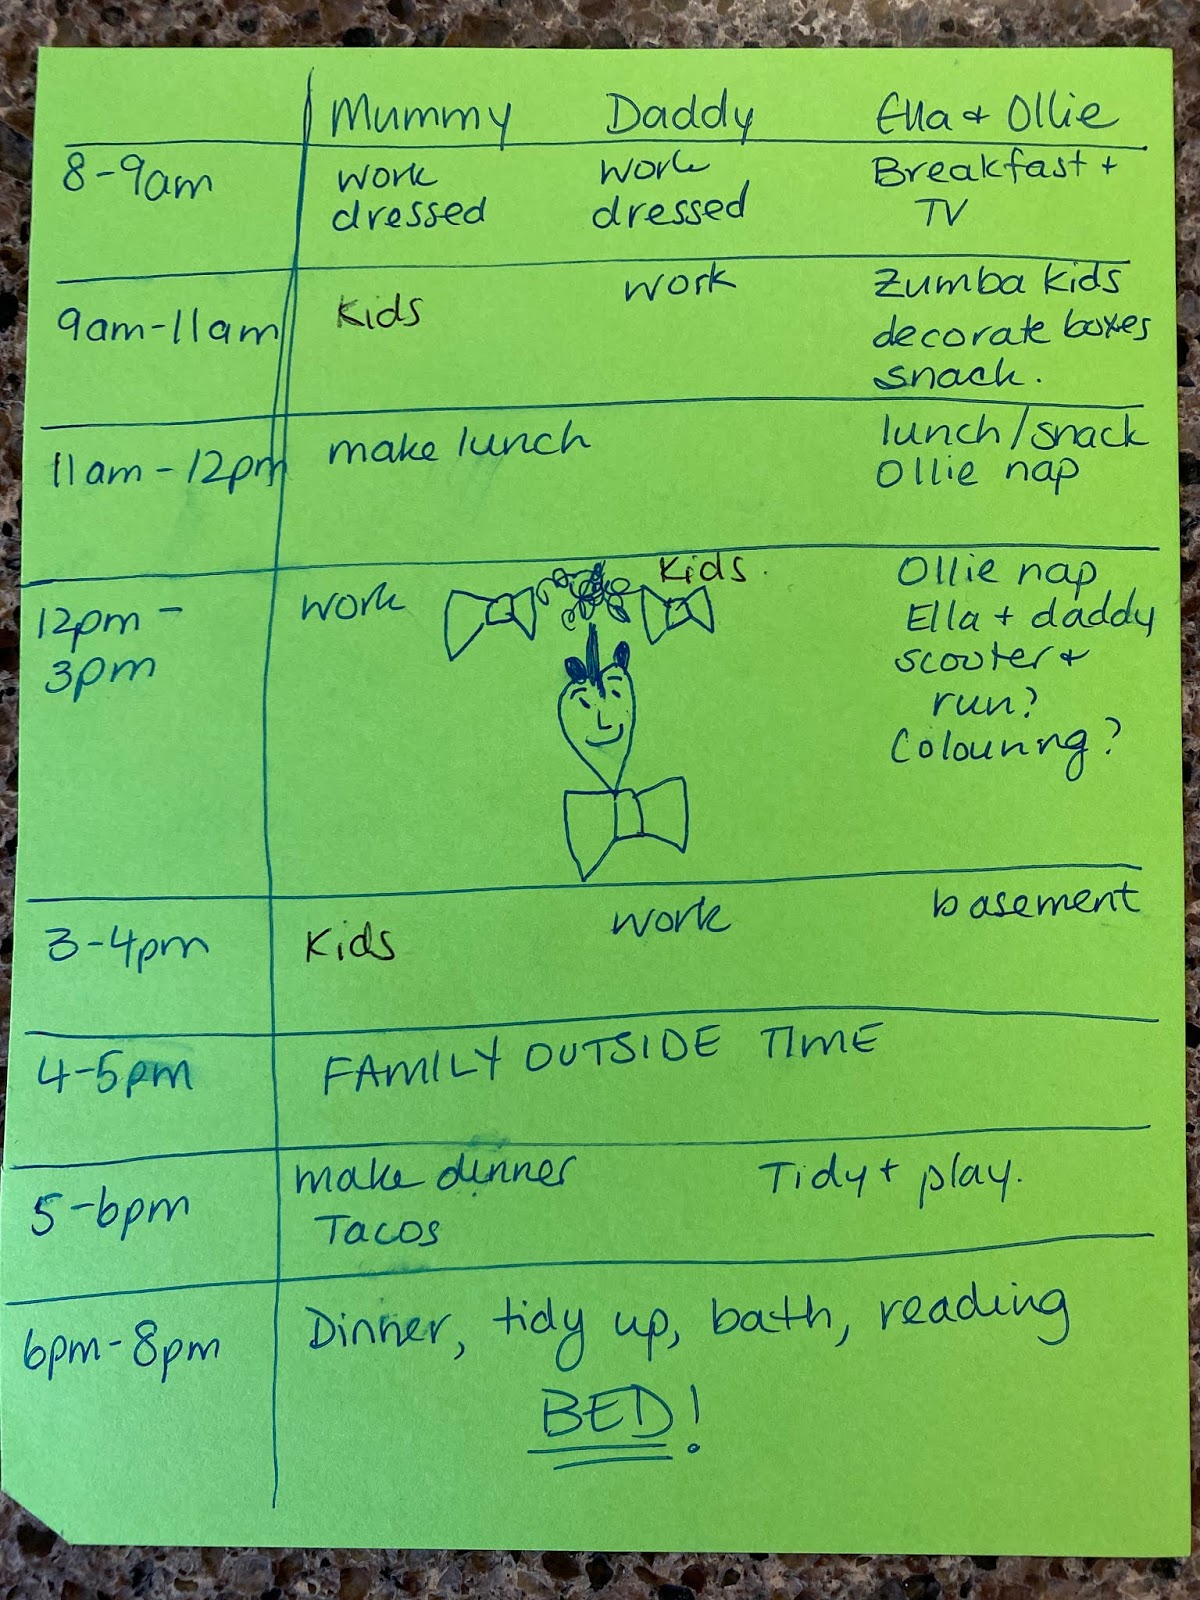 Mummy Daddy Ella + Ollie
8-9am work work Breakfast +
dressed dressed TV
9am-11am Kids work Zumba Kids
decorate boxes
snack.
11am-12pm make lunch lunch/snack
Ollie nap
12pm- work Kids. Ollie nap
3pm Ella + daddy
scooter +
run?
Colouring?
3-4pm Kids work basement
4-5pm FAMILY OUTSIDE TIME
5-6pm make dinner Tidy + play.
Tacos
6pm-8pm Dinner, tidy up, bath, reading
BED!